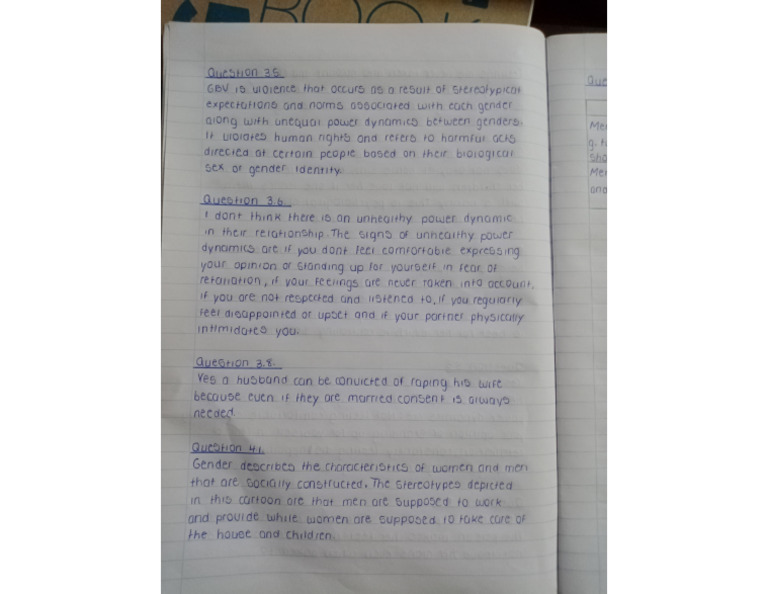 BOOK
Question 3.5.
GBV is violence that occurs as a result of stereotypical
expectations and norms associated with each gender
along with unequal power dynamics between genders.
It violates human rights and refers to harmful acts
directed at certain people based on their biological
sex or gender identity.
Question 3.6.
I dont think there is an unhealthy power dynamic
in their relationship. The signs of unhealthy power
dynamics are if you dont feel comfortable expressing
your opinion or standing up for yourself in fear of
retaliation, if your feelings are never taken into account,
if you are not respected and listened to, if you regularly
feel disappointed or upset and if your partner physically
intimidates you.
Question 3.8.
Yes a husband can be convicted of raping his wife
because even if they are married consent is always
needed.
Question 4.1.
Gender describes the characteristics of women and men
that are socially constructed. The stereotypes depicted
in this cartoon are that men are supposed to work
and provide while women are supposed to take care of
the house and children.
Que
Me
g. t
Sho
Me
and